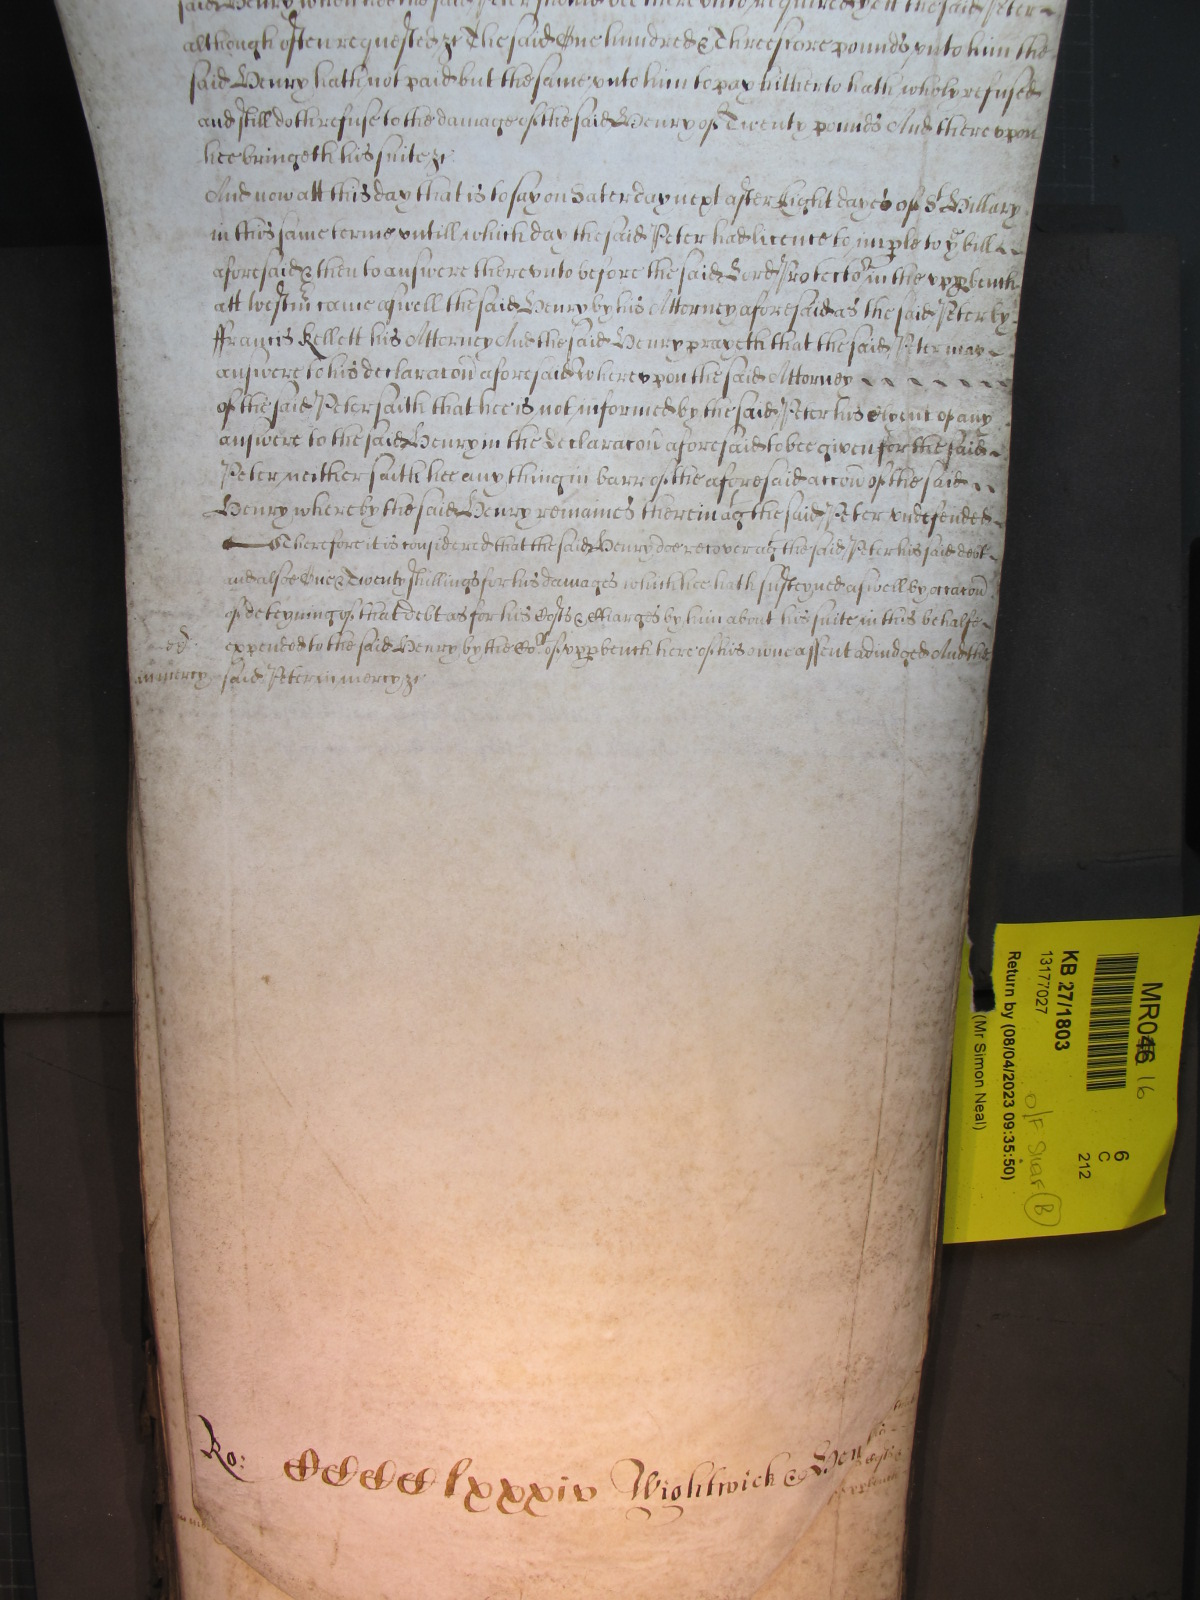 said Henry when hee the said Peter should bee thereunto required yett the said Peter
although often requested &c The said One hundred & Threescore pounds unto him the
said Henry hath not paid but the same unto him to pay hitherto hath wholy refused
and still doth refuse to the damage of the said Henry of Twenty pounds And thereupon
hee bringeth his suite &c
And now att this day that is to say on Saterday next after Eight dayes of St Hillary
in this same terme untill which day the said Peter had licence to imple to ye bill
aforesaid & then to answere thereunto before the said Lord Protector in the upp bench
att Westm came aswell the said Henry by his Attorney aforesaid as the said Peter by
ffrancis Kellett his Attorney And the said Henry prayeth that the said Peter may
answere to his declaracon aforesaid whereupon the said Attorney
of the said Peter saith that hee is not informed by the said Peter his Clyent of any
answere to the said Henry in the declaracon aforesaid to bee given for the said
Peter neither saith hee any thing in barr of the aforesaid accon of the said
Henry whereby the said Henry remaines therein agt the said Peter undefended
Therefore it is considered that the said Henry doe recover agt the said Peter his said debt
and alsoe One & Twenty shillings for his damages which hee hath susteyned aswell by occacon
of deteyning of that debt as for his Costs & Charges by him about his suite in this behalfe
expended to the said Henry by the Cort of upp bench here of his owne assent adiudged And the
in mercy said Peter in mercy &c
MR046 16
KB 27/1803
13177027
Return by (08/04/2023 09:35:50)
(Mr Simon Neal)
6
C
212
O/F Shelf B
Ro: CCCClxxxiv Wightwick &